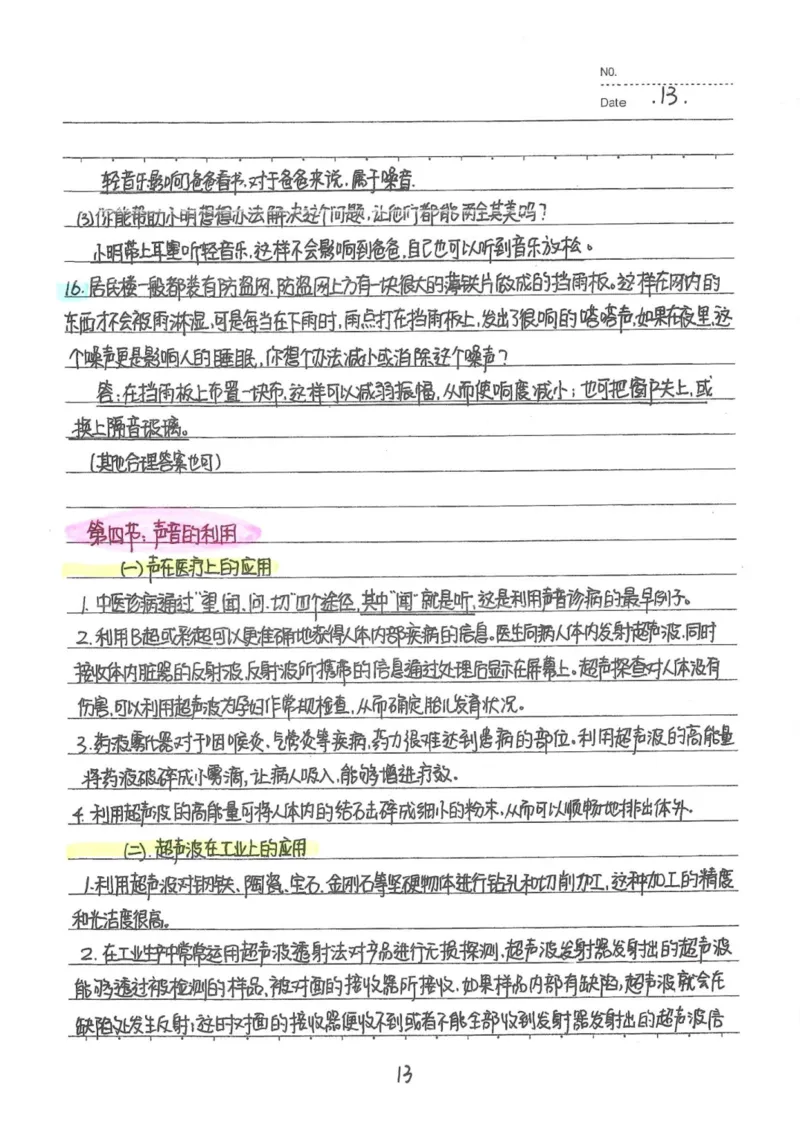 NO.
Date .13.
轻音乐影响了爸爸看书,对于爸爸来说,属于噪音.
(3)你能帮助小明想想办法解决这个问题,让他们都能两全其美吗?
小明带上耳塞听轻音乐,这样不会影响到爸爸,自己也可以听到音乐放松。
16.居民楼一般都装有防盗网,防盗网上方有一块很大的薄铁片做成的挡雨板。这样在网内的
东西才不会被雨淋湿,可是每当在下雨时,雨点打在挡雨板上,发出了很响的嗒嗒声,如果在夜里,这
个噪声更是影响人的睡眠,你想个办法减小或消除这个噪声?
答:在挡雨板上布置一块布,这样可以减弱振幅,从而使响度减小;也可把窗户关上,或
换上隔音玻璃。
(其他合理答案也可)
第四节:声音的利用
(一)声在医疗上的应用
1.中医诊病通过"望、闻、问、切"四个途径,其中"闻"就是听,这是利用声音诊病的最早例子。
2.利用B超或彩超可以更准确地获得人体内部疾病的信息。医生向病人体内发射超声波,同时
接收体内脏器的反射波,反射波所携带的信息通过处理后显示在屏幕上。超声探查对人体没有
伤害,可以利用超声波为孕妇作常规检查,从而确定胎儿发育状况。
3.药液雾化器对于咽喉炎、气管炎等疾病,药力很难达到患病的部位。利用超声波的高能量
将药液破碎成小雾滴,让病人吸入,能够增进疗效。
4.利用超声波的高能量可将人体内的结石击碎成细小的粉末,从而可以顺畅地排出体外.
(二).超声波在工业上的应用
1.利用超声波对钢铁、陶瓷、宝石、金刚石等坚硬物体进行钻孔和切削加工,这种加工的精度
和光洁度很高。
2.在工业生产中常常运用超声波透射法对产品进行无损探测.超声波发射器发射出的超声波
能够透过被检测的样品,被对面的接收器所接收.如果样品内部有缺陷,超声波就会在
缺陷处发生反射;这时对面的接收器便收不到或者不能全部收到发射器发射出的超声波信
13